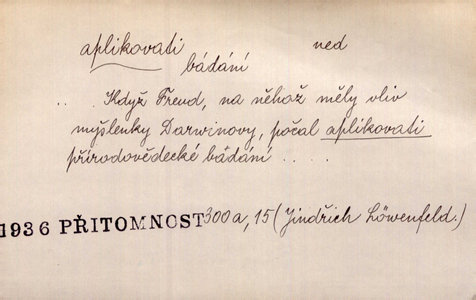 aplikovati ned
bádání
. . Když Freud, na něhož měly vliv
myšlenky Darwinovy, počal aplikovati
přírodovědecké bádání . . . .
1936 PŘITOMNOST 300a, 15 (Jindřich Löwenfeld.)